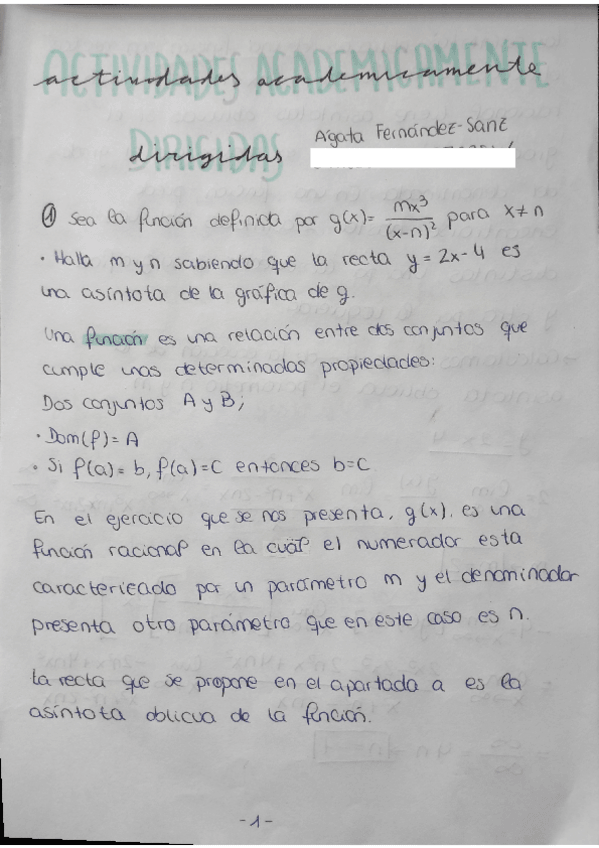 ACTIVIDADES ACADEMICAMENTE
actividades academicamente
DIRIGIDAS
dirigidas
Ágata Fernández-Sanz
① Sea la función definida por g(x)= mx³/(x-n)² para x≠n
· Halla m y n sabiendo que la recta y = 2x-4 es
una asíntota de la gráfica de g.
Una función es una relación entre dos conjuntos que
cumple unas determinadas propiedades:
Dos conjuntos A y B;
· Dom(f)= A
· Si f(a)= b, f(a)=C entonces b=C.
En el ejercicio que se nos presenta, g(x), es una
función racional en la cuál el numerador esta
caracterizado por un parámetro m y el denominador
presenta otro parámetro que en este caso es n.
La recta que se propone en el apartada a es la
asíntota oblicua de la función.
-1-